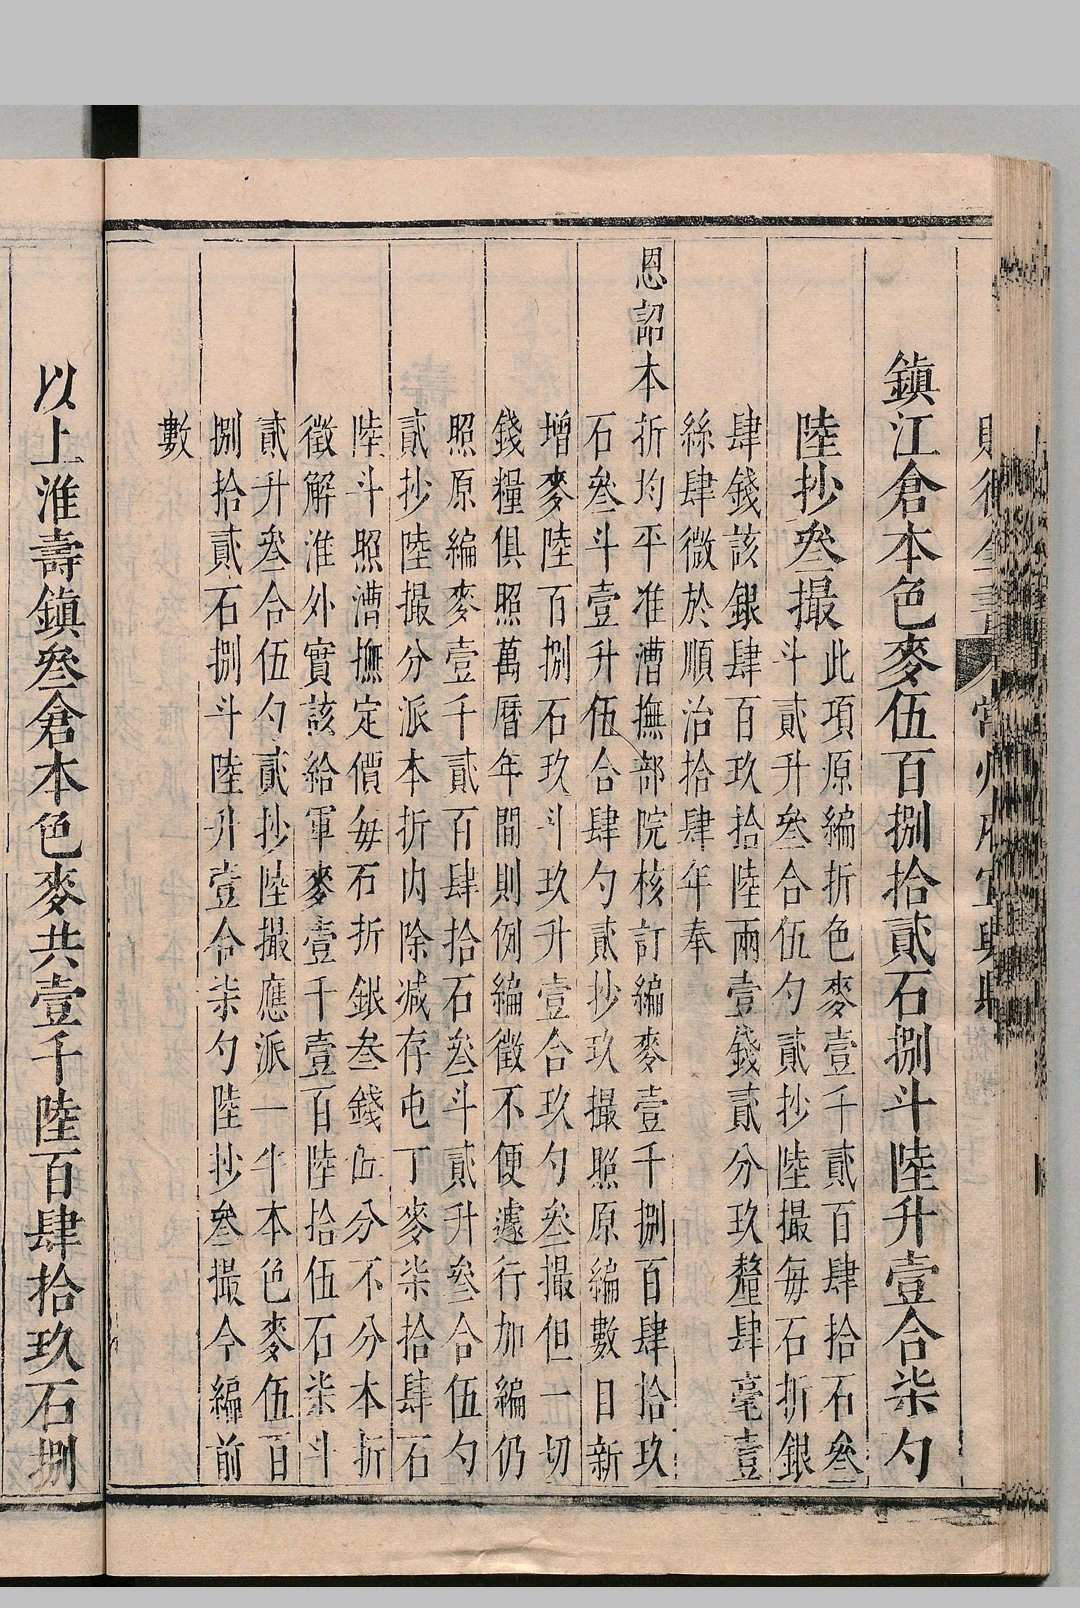 鎮江倉本色麥伍百捌拾貳石捌斗陸升壹合柒勺
陸抄叁撮
此項原編折色麥壹千貳百肆拾石叁
斗貳升叁合伍勺貳抄陸撮每石折銀
肆錢該銀肆百玖拾陸兩壹錢貳分玖釐肆毫壹
絲肆微於順治拾肆年奉
恩詔本折均平准漕撫部院核訂編麥壹千捌百肆拾玖
石叁斗壹升伍合肆勺貳抄玖撮照原編數目新
增麥陸百捌石玖斗玖升壹合玖勺叁撮但一切
錢糧俱照萬曆年間則例編徵不便遽行加編仍
照原編麥壹千貳百肆拾石叁斗貳升叁合伍勺
貳抄陸撮分派本折內除減存屯丁麥柒拾肆石
陸斗照漕撫定價每石折銀叁錢伍分不分本折
徵解淮外實該給軍麥壹千壹百陸拾伍石柒斗
貳升叁合伍勺貳抄陸撮應派一半本色麥伍百
捌拾貳石捌斗陸升壹合柒勺陸抄叁撮今編前
數
以上淮壽鎮叁倉本色麥共壹千陸百肆拾玖石捌